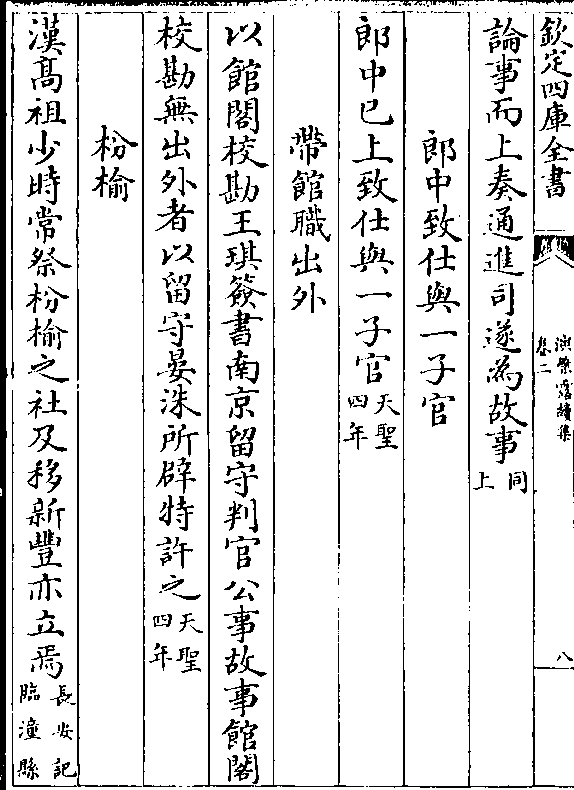 欽定四庫全書
演繁露續集
卷二
八
論事而上奏通進司遂為故事同上
郎中致仕與一子官
郎中已上致仕與一子官天聖四年
帶館職出外
以館閣校勘王琪簽書南京留守判官公事故事館閣
校勘無出外者以留守晏洙所辟特許之天聖四年
枌榆
漢髙祖少時常祭枌榆之社及移新豐亦立焉長安記臨潼縣